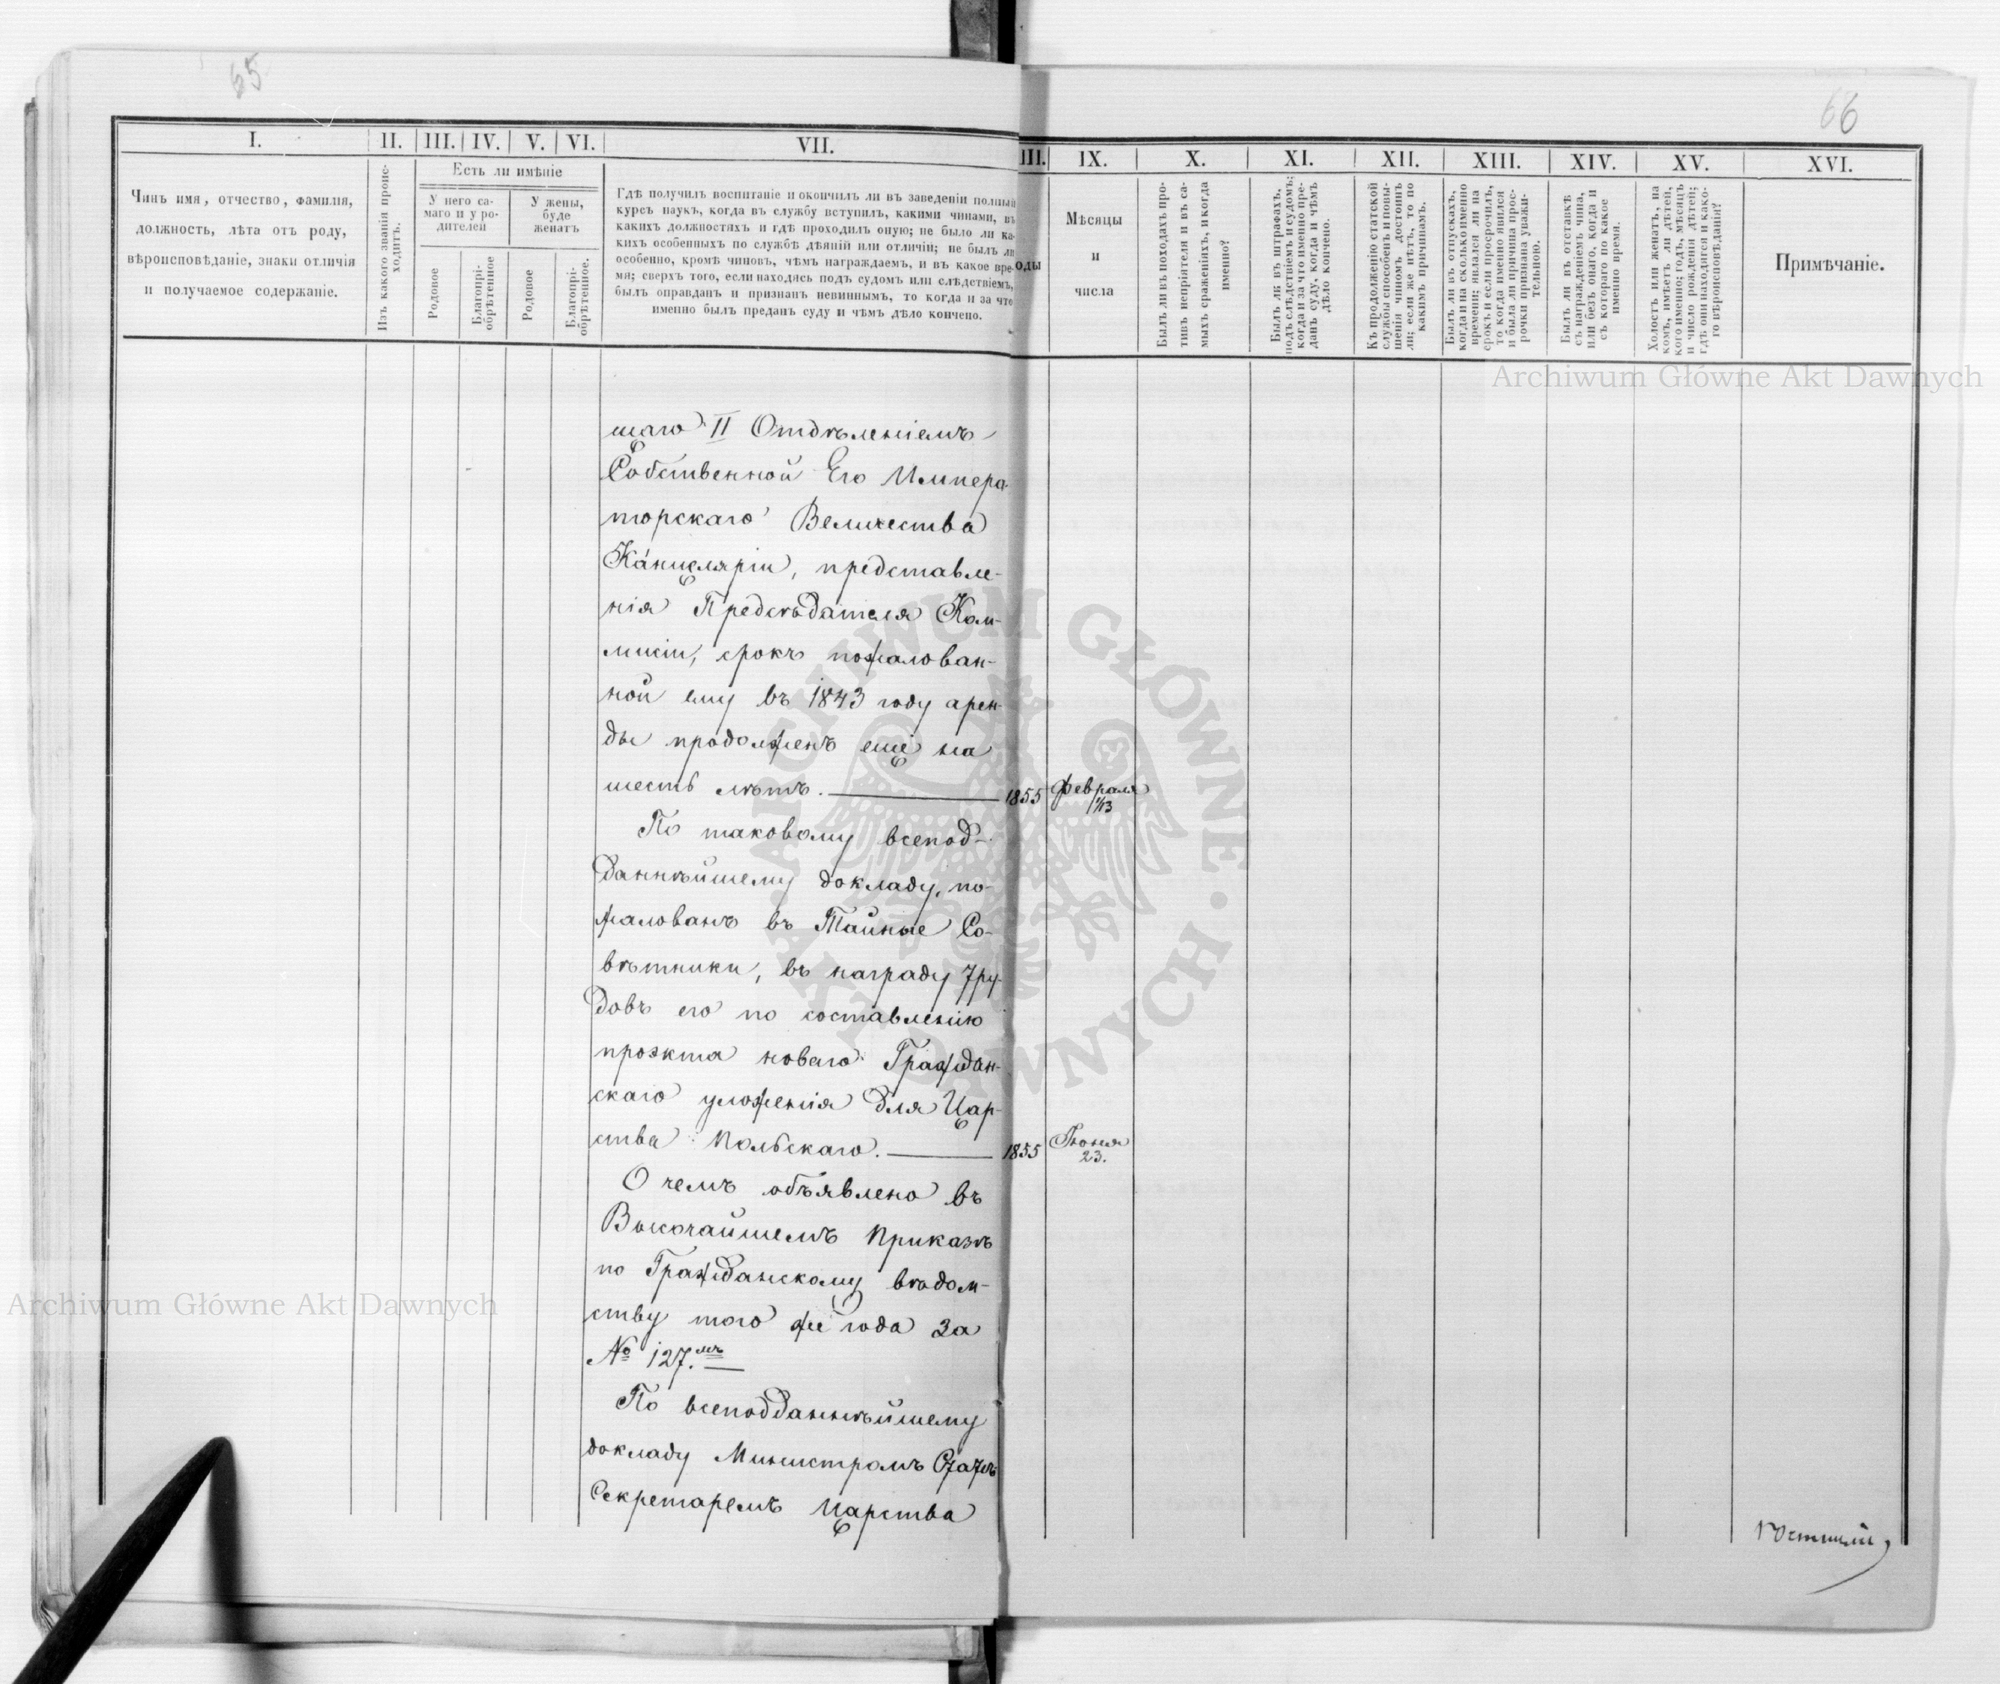 65
66
I.
II.
III.
IV.
V.
VI.
VII.
III.
IX.
X.
XI.
XII.
XIII.
XIV.
XV.
XVI.
Чинъ имя, отчество, фамилія,
должность, лѣта отъ роду,
вѣроисповѣданіе, знаки отличія
и получаемое содержаніе.
Изъ какого званія проис-
ходитъ.
Есть ли имѣніе
У него са-
маго и у ро-
дителей
У жены,
буде
женатъ
Родовое
Благопрі-
обрѣтенное
Родовое
Благопрі-
обрѣтенное.
Гдѣ получилъ воспитаніе и окончилъ ли въ заведеніи полный
курсъ наукъ, когда въ службу вступилъ, какими чинами, въ
какихъ должностяхъ и гдѣ проходилъ оную; не было ли ка-
кихъ особенныхъ по службѣ дѣяній или отличій; не былъ ли
особенно, кромѣ чиновъ, чѣмъ награждаемъ, и въ какое вре-
мя; сверхъ того, если находясь подъ судомъ или слѣдствіемъ,
былъ оправданъ и признанъ невиннымъ, то когда и за что
именно былъ преданъ суду и чѣмъ дѣло кончено.
оды
Мѣсяцы
и
числа
Былъ ли въ походахъ про-
тивъ непріятеля и въ са-
мыхъ сраженіяхъ, и когда
именно?
Былъ ли въ штрафахъ,
подъ слѣдствіемъ и судомъ;
когда и за что именно пре-
данъ суду, когда и чѣмъ
дѣло кончено.
Къ продолженію статской
службы способенъ и повы-
шенія чиномъ достоинъ
ли; если же нѣтъ, то по
какимъ причинамъ.
Былъ ли въ отпускахъ,
когда и на сколько именно
времени; являлся ли на
срокъ и если просрочилъ,
то когда именно явился
и была ли причина прос-
рочки признана уважи-
тельною.
Былъ ли въ отставкѣ
съ награжденіемъ чина,
или безъ онаго, когда и
съ котораго по какое
именно время.
Холостъ или женатъ, на
комъ, имѣетъ ли дѣтей,
кого именно; годъ, мѣсяцъ
и число рожденія дѣтей;
гдѣ они находятся и како-
го вѣроисповѣданія?
Примѣчаніе.
шаго II Отдѣленіемъ
Собственной Его Импера-
торскаго Величества
Канцеляріи, представле-
нія Предсѣдателя Ком-
мисіи, срокъ пожалован-
ной ему въ 1843 году арен-
ды продолженъ еще на
шесть лѣтъ. 1855 Февраля
1/13
По таковому всепод-
даннѣйшему докладу, по-
жалованъ въ Тайные Со-
вѣтники, въ награду тру-
довъ его по составленію
проэкта новаго Граждан-
скаго уложенія для Цар-
ства Польскаго. 1855 Іюня
23.
О чемъ объявлено въ
Высочайшемъ Приказѣ
по Гражданскому вѣдом-
ству того же года за
№ 127.мъ
По всеподданнѣйшему
докладу Министромъ Статсъ
Секретаремъ Царства
Archiwum Główne Akt Dawnych
Archiwum Główne Akt Dawnych
ARCHIWUM GŁÓWNE AKT DAWNYCH